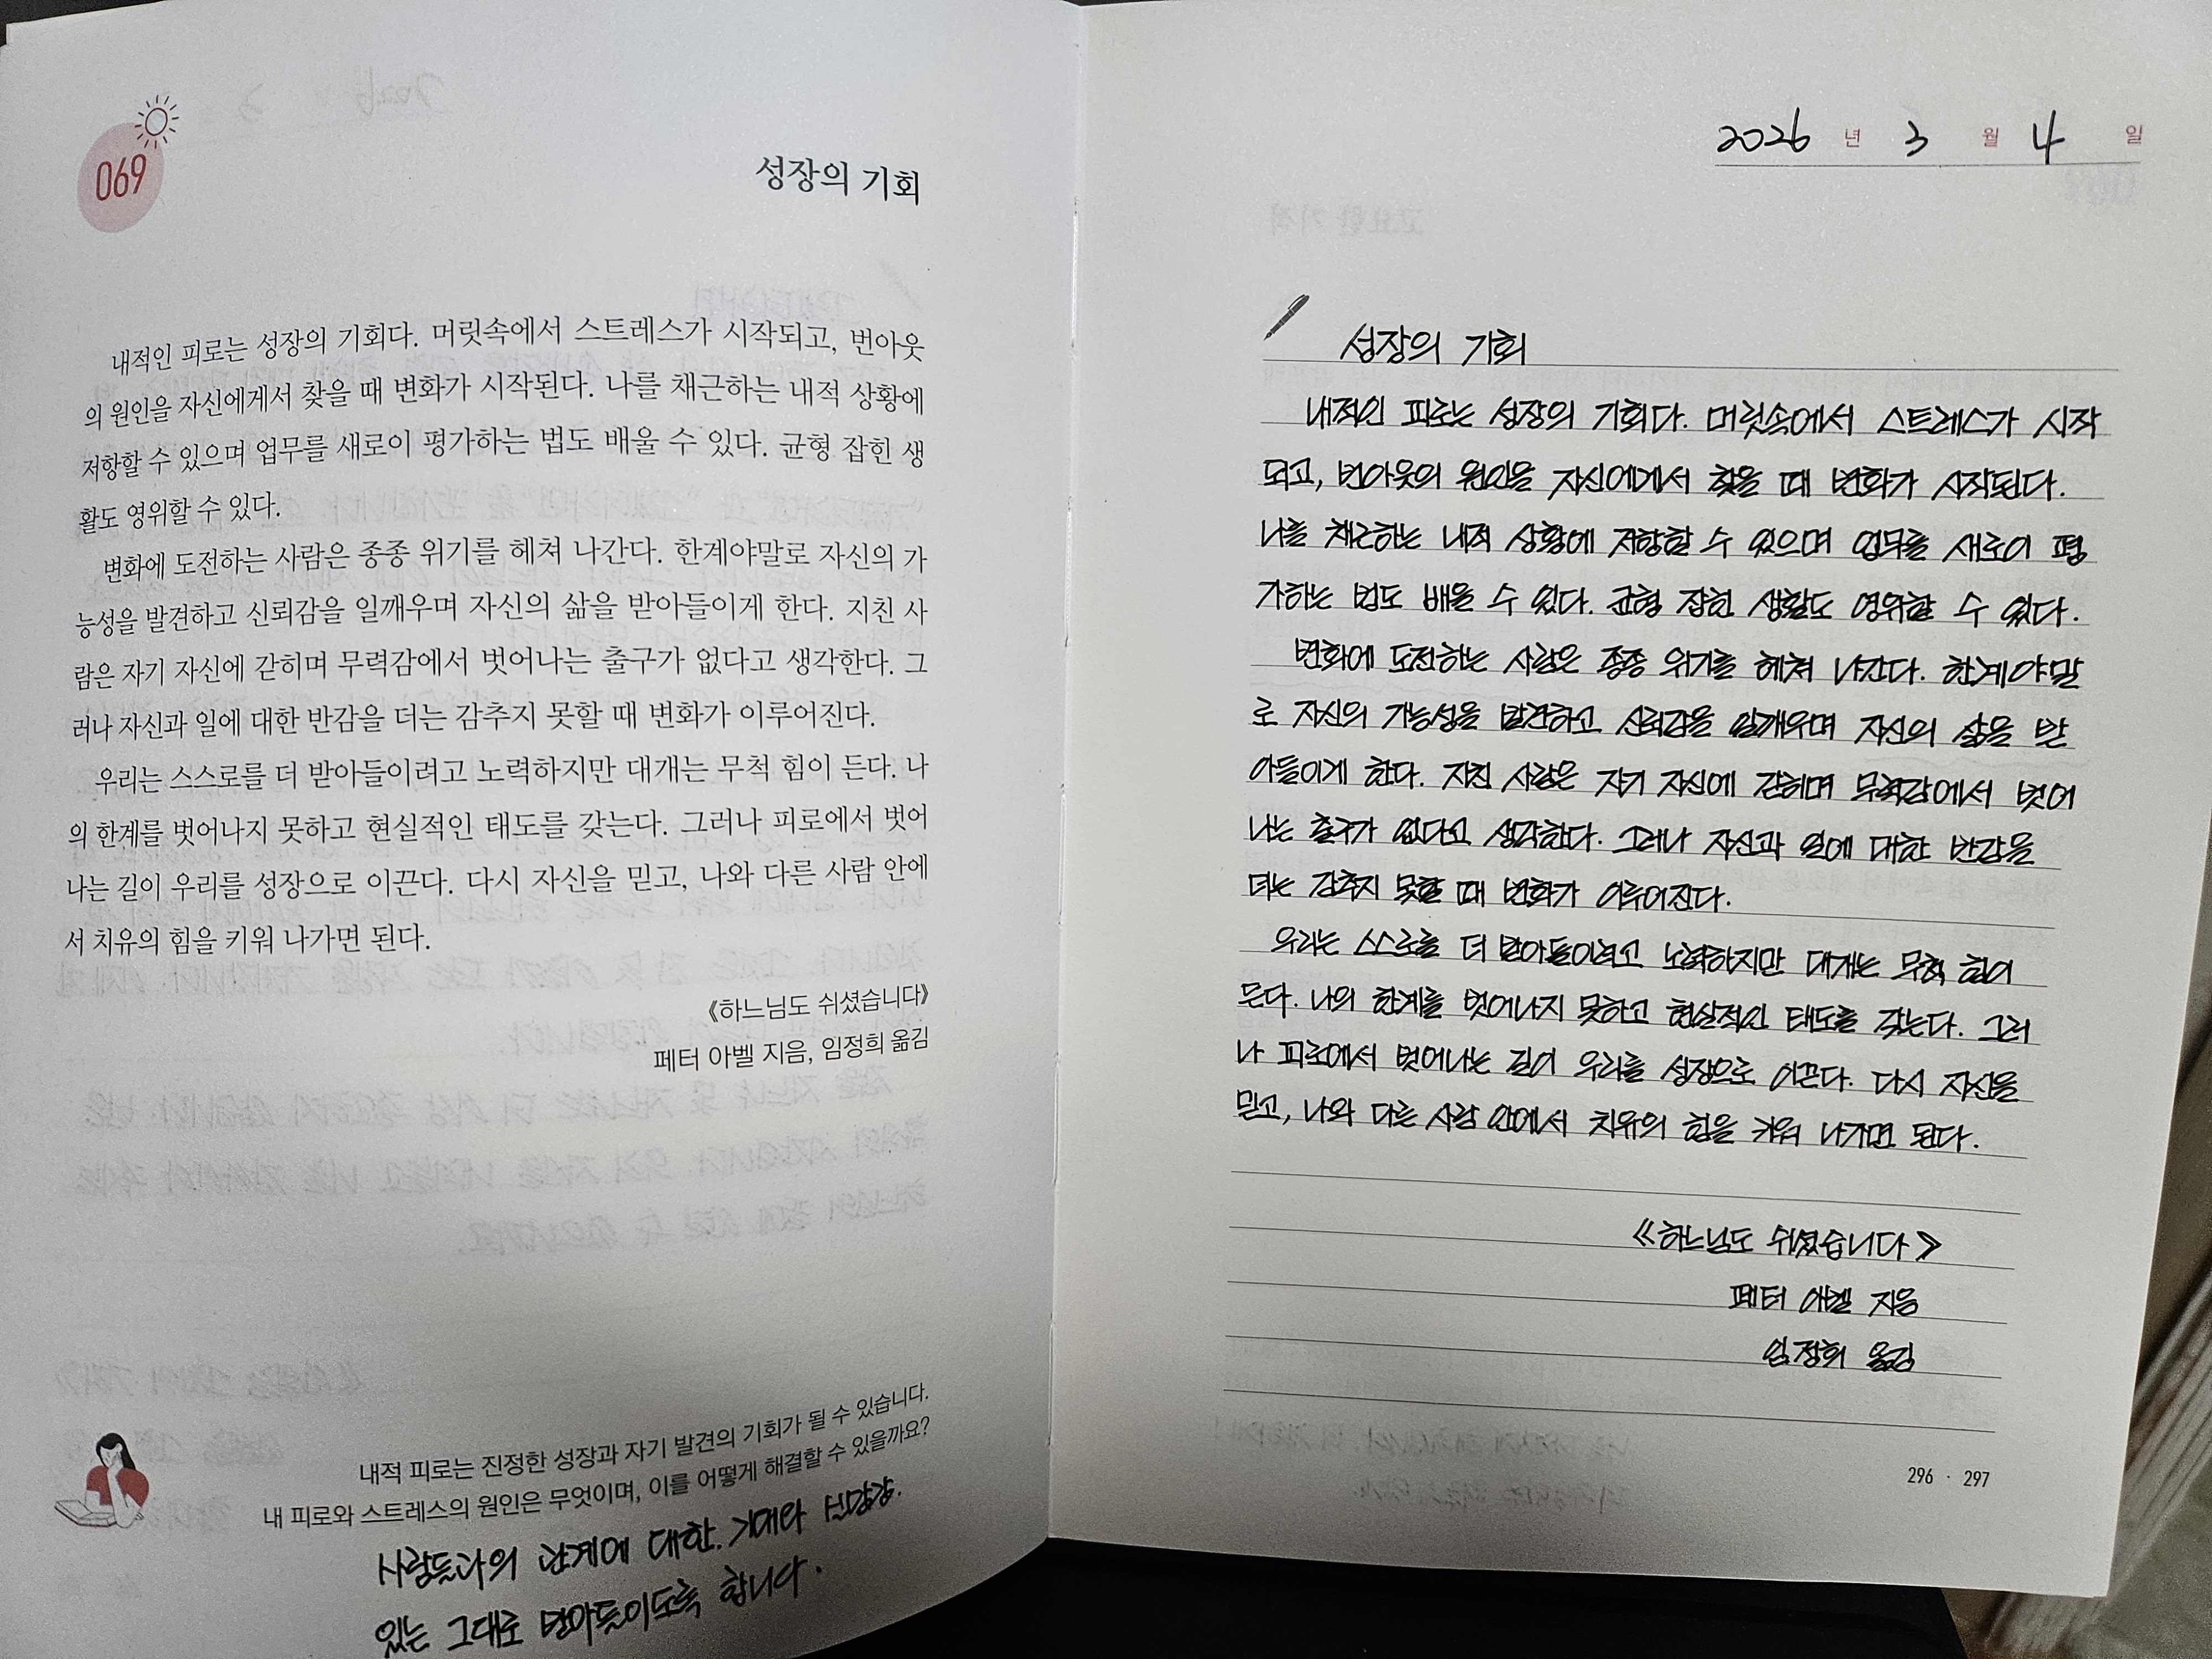 069
성장의 기회
내적인 피로는 성장의 기회다. 머릿속에서 스트레스가 시작되고, 번아웃
의 원인을 자신에게서 찾을 때 변화가 시작된다. 나를 채근하는 내적 상황에
저항할 수 있으며 업무를 새로이 평가하는 법도 배울 수 있다. 균형 잡힌 생
활도 영위할 수 있다.
변화에 도전하는 사람은 종종 위기를 헤쳐 나간다. 한계야말로 자신의 가
능성을 발견하고 신뢰감을 일깨우며 자신의 삶을 받아들이게 한다. 지친 사
람은 자기 자신에 갇히며 무력감에서 벗어나는 출구가 없다고 생각한다. 그
러나 자신과 일에 대한 반감을 더는 감추지 못할 때 변화가 이루어진다.
우리는 스스로를 더 받아들이려고 노력하지만 대개는 무척 힘이 든다. 나
의 한계를 벗어나지 못하고 현실적인 태도를 갖는다. 그러나 피로에서 벗어
나는 길이 우리를 성장으로 이끈다. 다시 자신을 믿고, 나와 다른 사람 안에
서 치유의 힘을 키워 나가면 된다.
《하느님도 쉬셨습니다》
페터 아벨 지음, 임정희 옮김
내적 피로는 진정한 성장과 자기 발견의 기회가 될 수 있습니다.
내 피로와 스트레스의 원인은 무엇이며, 이를 어떻게 해결할 수 있을까요?
사람들과의 관계에 대한 기대와 실망감.
있는 그대로 받아들이도록 합니다.
2026 년 3 월 4 일
성장의 기회
내적인 피로는 성장의 기회다. 머릿속에서 스트레스가 시작
되고, 번아웃의 원인을 자신에게서 찾을 때 변화가 시작된다.
나를 채근하는 내적 상황에 저항할 수 있으며 업무를 새로이 평
가하는 법도 배울 수 있다. 균형 잡힌 생활도 영위할 수 있다.
변화에 도전하는 사람은 종종 위기를 헤쳐 나간다. 한계야말
로 자신의 가능성을 발견하고 신뢰감을 일깨우며 자신의 삶을 받
아들이게 한다. 지친 사람은 자기 자신에 갇히며 무력감에서 벗어
나는 출구가 없다고 생각한다. 그러나 자신과 일에 대한 반감을
더는 감추지 못할 때 변화가 이루어진다.
우리는 스스로를 더 받아들이려고 노력하지만 대개는 무척 힘이
든다. 나의 한계를 벗어나지 못하고 현실적인 태도를 갖는다. 그러
나 피로에서 벗어나는 길이 우리를 성장으로 이끈다. 다시 자신을
믿고, 나와 다른 사람 안에서 치유의 힘을 키워 나가면 된다.
《하느님도 쉬셨습니다》
페터 아벨 지음
임정희 옮김
296 · 297